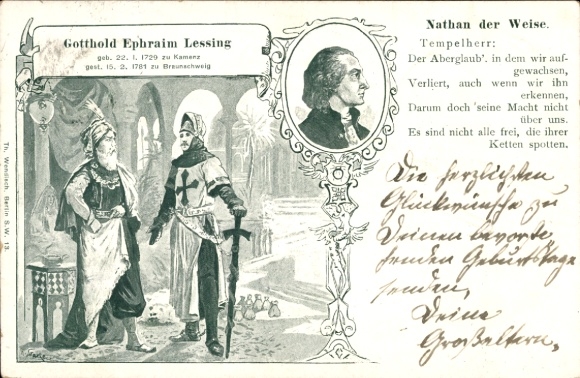 Gotthold Ephraim Lessing
geb. 22. 1. 1729 zu Kamenz
gest. 15. 2. 1781 zu Braunschweig
Nathan der Weise.
Tempelherr:
Der Aberglaub'. in dem wir auf-
gewachsen,
Verliert, auch wenn wir ihn
erkennen,
Darum doch 'seine Macht nicht
über uns.
Es sind nicht alle frei, die ihrer
Ketten spotten.
Die herzlichsten
Glückwünsche zu
Deinem bevorste
henden Geburtstage
senden,
Deine
Großeltern.
Th. Wendisch. Berlin S.W. 13.